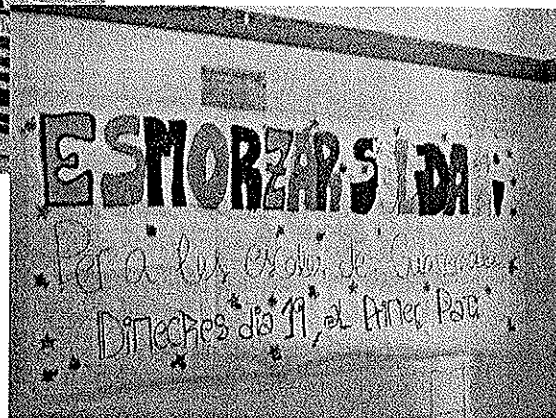 ESMORZAR SOLIDARI
Per a les escoles de
Dimecres dia 19, al Primer Pati